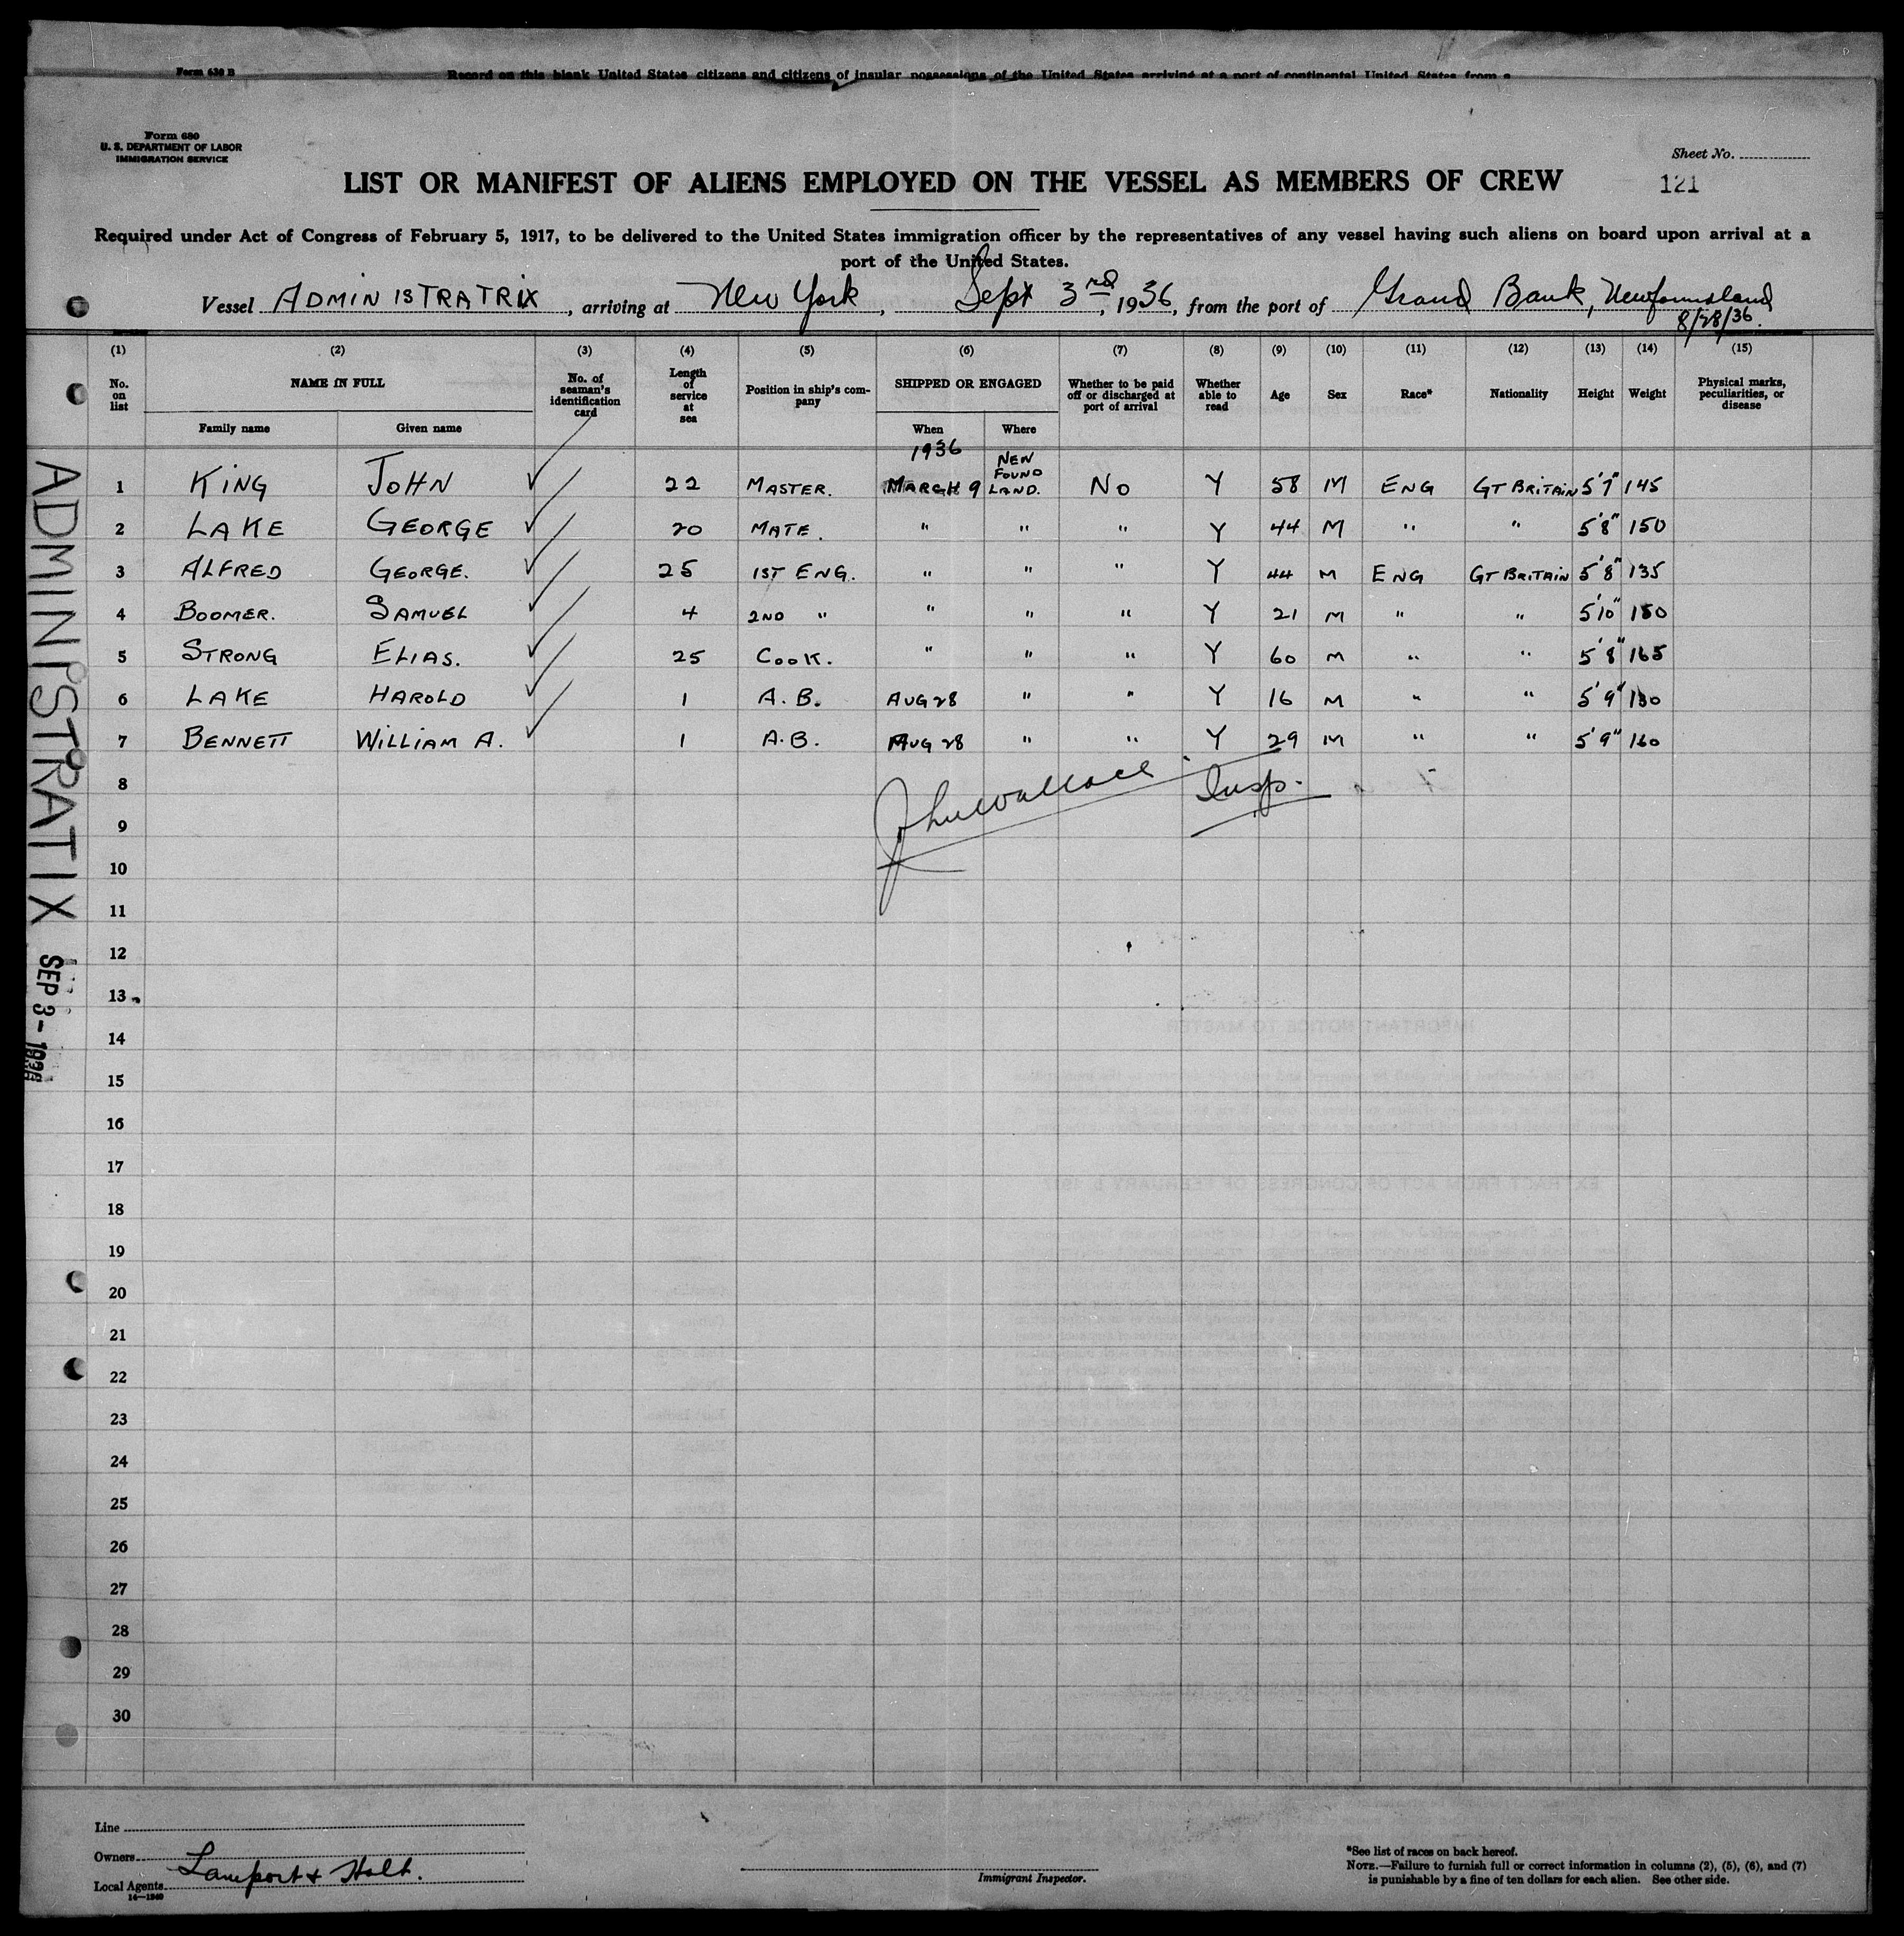 Form 630 B
Record on this blank United States citizens and citizens of insular possessions of the United States arriving at a port of continental United States from a
Form 680
U. S. DEPARTMENT OF LABOR
IMMIGRATION SERVICE
Sheet No.
LIST OR MANIFEST OF ALIENS EMPLOYED ON THE VESSEL AS MEMBERS OF CREW
121
Required under Act of Congress of February 5, 1917, to be delivered to the United States immigration officer by the representatives of any vessel having such aliens on board upon arrival at a
port of the United States.
Vessel ADMINISTRATRIX, arriving at New York, Sept 3rd, 1936, from the port of Grand Bank, Newfoundland
8/28/36.
(1) (2) (3) (4) (5) (6) (7) (8) (9) (10) (11) (12) (13) (14) (15)
No. on list NAME IN FULL No. of seaman's identification card Length of service at sea Position in ship's company SHIPPED OR ENGAGED Whether to be paid off or discharged at port of arrival Whether able to read Age Sex Race* Nationality Height Weight Physical marks, peculiarities, or disease
Family name Given name When Where
1936
1 KING JOHN ✓ 22 MASTER. MARCH 9 NEW FOUND LAND. NO Y 58 M ENG GT BRITAIN 5'7" 145
2 LAKE GEORGE ✓ 20 MATE. " " " Y 44 M " " 5'8" 150
3 ALFRED GEORGE. ✓ 25 1ST ENG. " " " Y 44 M ENG GT BRITAIN 5'8" 135
4 BOOMER. SAMUEL ✓ 4 2ND " " " " Y 21 M " " 5'10" 150
5 STRONG ELIAS. ✓ 25 COOK. " " " Y 60 M " " 5'8" 165
6 LAKE HAROLD ✓ 1 A.B. AUG 28 " " Y 16 M " " 5'9" 130
7 BENNETT WILLIAM A. ✓ 1 A.B. AUG 28 " " Y 29 M " " 5'9" 160
8
Jno Wallace Insp.
9
10
11
12
13
14
15
16
17
18
19
20
21
22
23
24
25
26
27
28
29
30
ADMINISTRATIX
SEP 3 - 1936
Line
Owners
Lamport & Holt.
Local Agents
14—1940
Immigrant Inspector.
*See list of races on back hereof.
NOTE.—Failure to furnish full or correct information in columns (2), (5), (6), and (7)
is punishable by a fine of ten dollars for each alien. See other side.